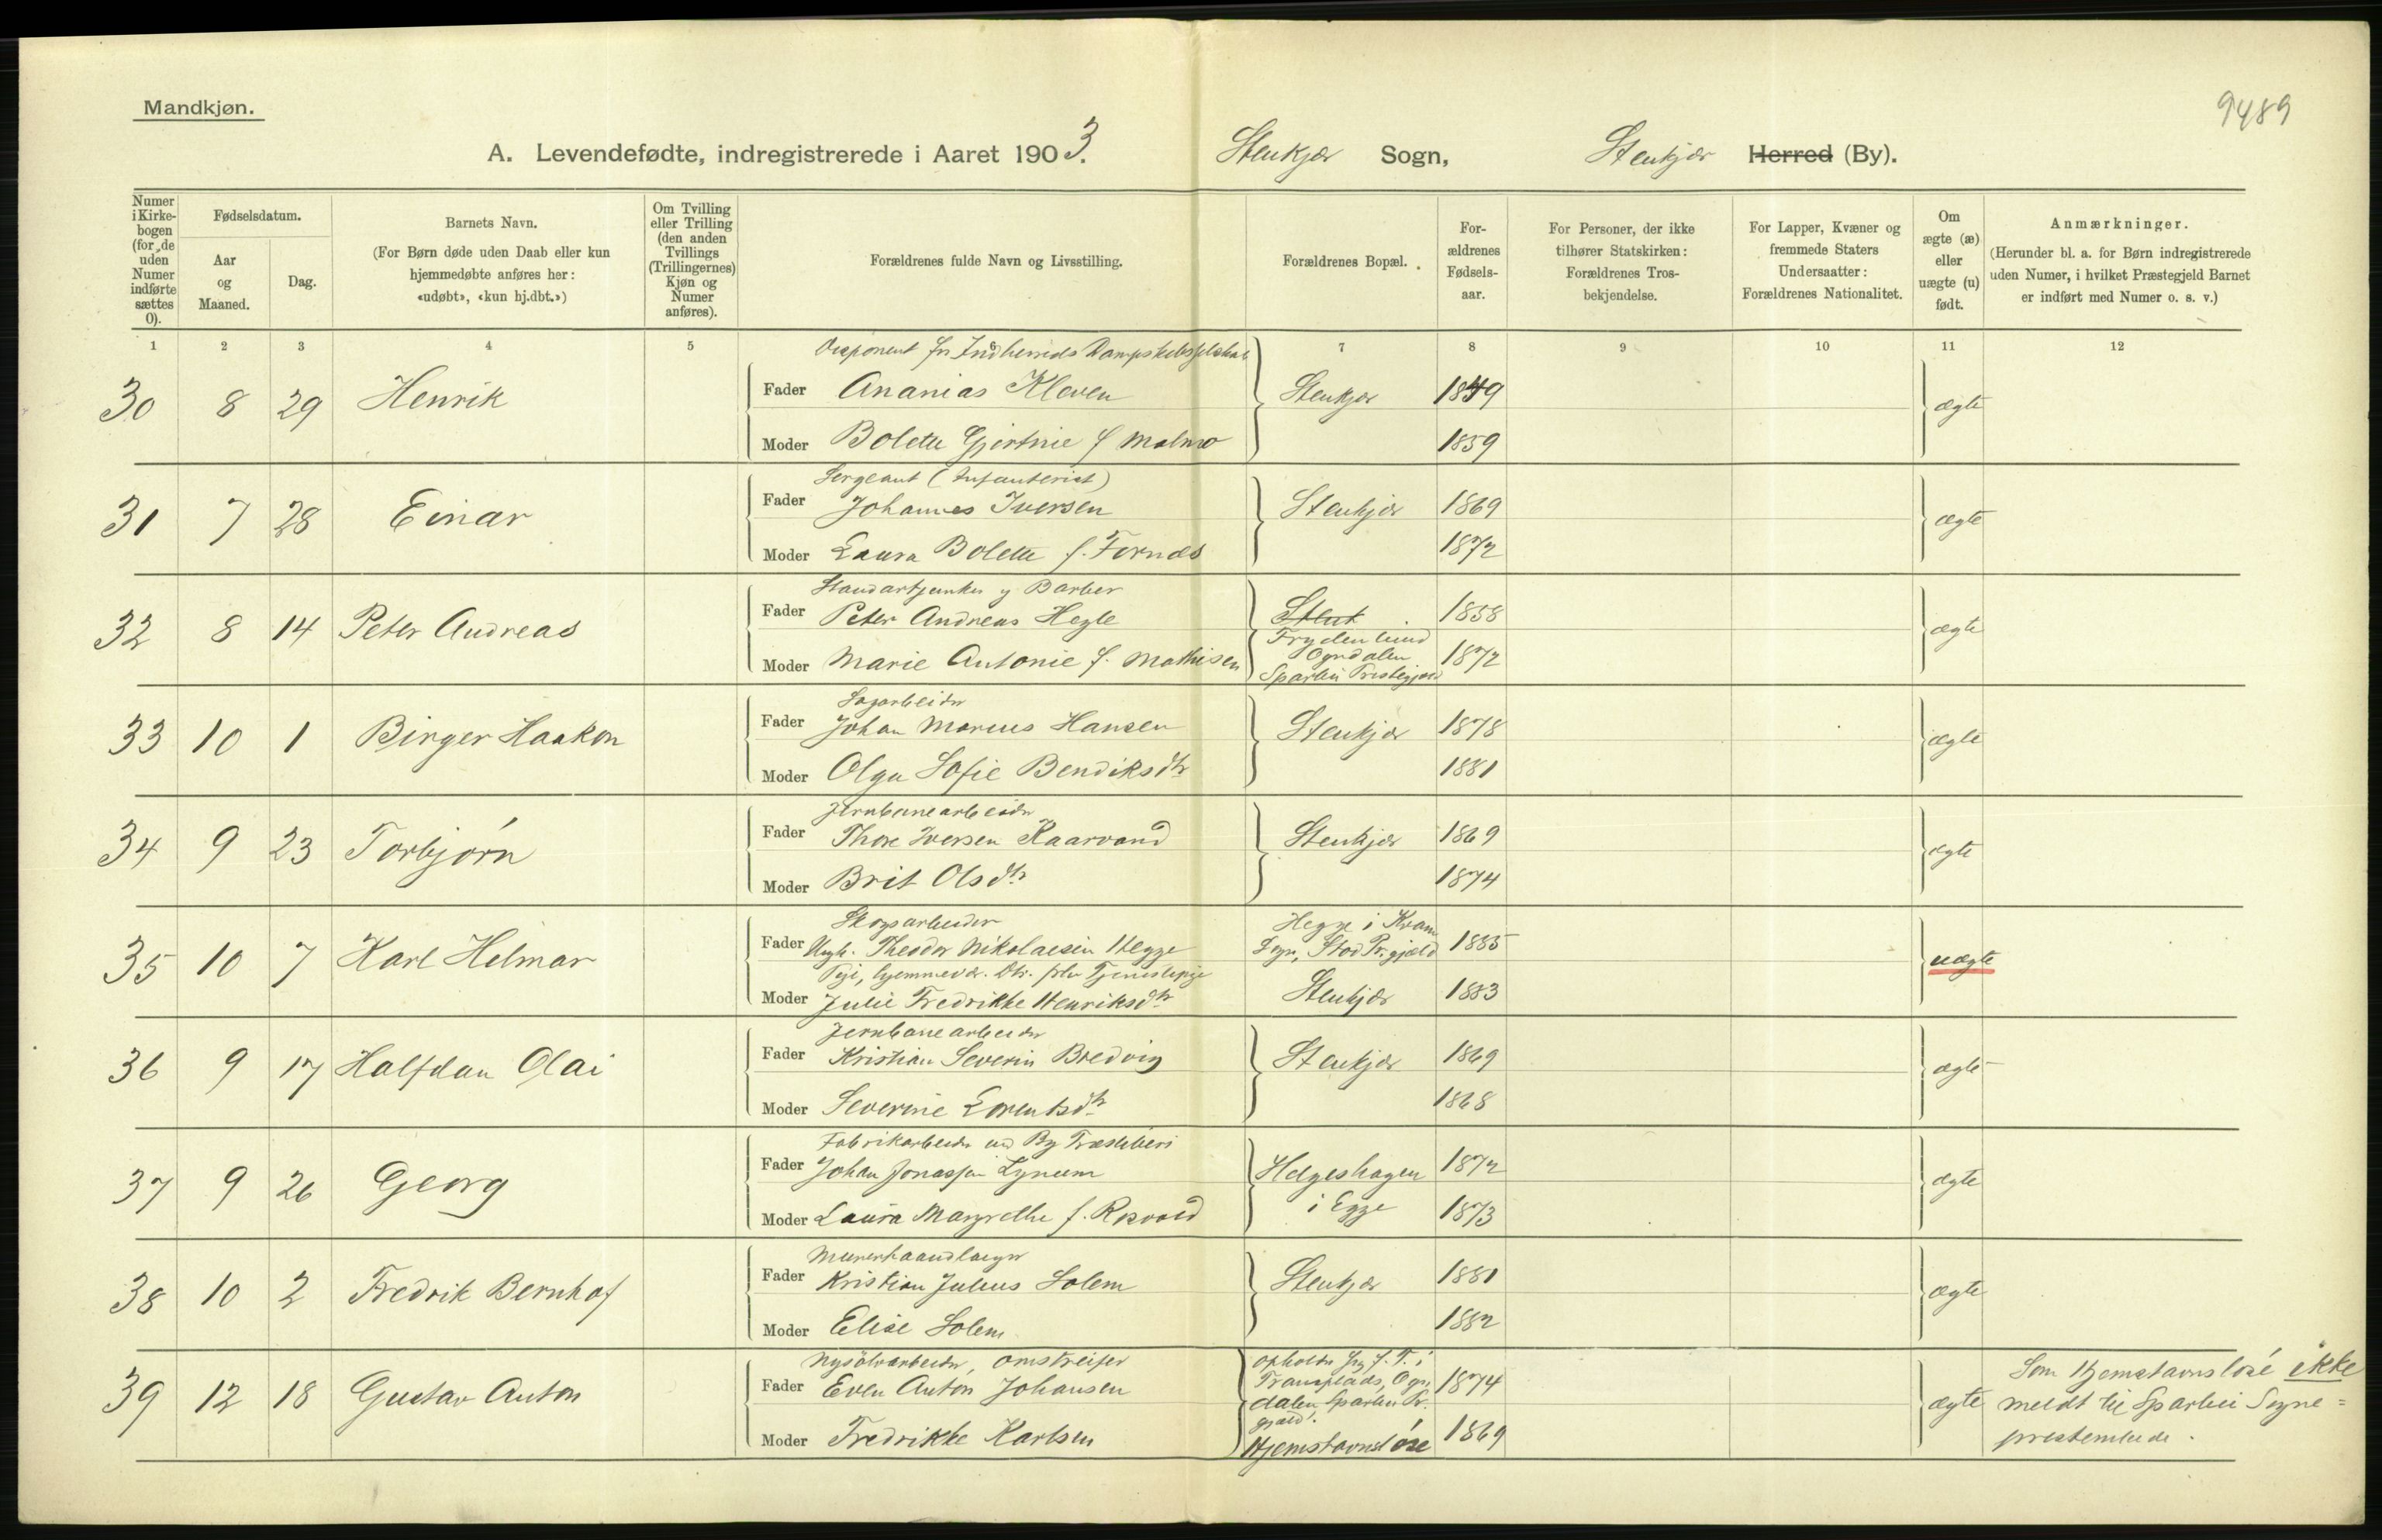 Mandkjøn.
9489
A. Levendefødte, indregistrerede i Aaret 1903. Stenkjær Sogn, Stenkjær Herred (By).
Numer i Kirkebogen (for de uden Numer indførte sættes 0).
Fødselsdatum.
Aar og Maaned.
Dag.
Barnets Navn.
(For Børn døde uden Daab eller kun hjemmedøbte anføres her: «udøbt», «kun hj.dbt.»)
Om Tvilling eller Trilling (den anden Tvillings (Trillingernes) Kjøn og Numer anføres).
Forældrenes fulde Navn og Livsstilling.
Forældrenes Bopæl.
Forældrenes Fødselsaar.
For Personer, der ikke tilhører Statskirken: Forældrenes Trosbekjendelse.
For Lapper, Kvæner og fremmede Staters Undersaatter: Forældrenes Nationalitet.
Om ægte (æ) eller uægte (u) født.
Anmærkninger.
(Herunder bl. a. for Børn indregistrerede uden Numer, i hvilket Præstegjeld Barnet er indført med Numer o. s. v.)
1 2 3 4 5 6 7 8 9 10 11 12
Disponent for Indherreds Dampskibsselskab
30 8 29 Henrik Fader Ananias Kleven Stenkjær 1849 ægte
Moder Bolette Gjertine f Malmo 1859
Sergeant (Infanteriet)
31 7 28 Einar Fader Johannes Iversen Stenkjær 1869 ægte
Moder Laura Bolette f. Fornæs 1872
Standartjunker og Barber
32 8 14 Peter Andreas Fader Peter Andreas Hegle Stenk 1858 ægte
Moder Marie Antonie f. Mathisen Frydenlund Ogndalen Sparbu Prestegjæld 1872
Sagarbeider
33 10 1 Birger Haakon Fader Johan Marius Hansen Stenkjær 1878 ægte
Moder Olga Sofie Bendiksdtr 1881
Jernbanearbeider
34 9 23 Torbjørn Fader Thore Iversen Kaarvand Stenkjær 1869 ægte
Moder Brit Olsdtr 1874
Skogsarbeider
35 10 7 Karl Helmar Fader Ungk. Theodor Nikolaisen Hegge Hegge i Kvam Sogn, Stod Pr.gjæld 1885 uægte
Pige, hjemmevær. Dtr. før Tjenestepige
Moder Julie Fredrikke Henriksdtr Stenkjær 1883
Jernbanearbeider
36 9 17 Halfdan Olai Fader Kristian Severin Bredvig Stenkjær 1869 ægte
Moder Severine Lorentsdtr 1868
Fabrikarbeider ved By Træsliberi
37 9 26 Georg Fader Johan Jonassen Lynum Helgeshagen 1872 ægte
Moder Laura Margrethe f. Rosvold i Egge 1873
Murerhaandlanger
38 10 2 Fredrik Bernhof Fader Kristian Julius Solem Stenkjær 1881 ægte
Moder Elise Solem 1882
Nysølvarbeider, omstreifer
39 12 18 Gustav Anton Fader Even Anton Johansen opholder sig f. T. i Tranaplads, Ogndalen Sparbu Pr.gjæld. 1874 ægte
Moder Fredrikke Karlsen Hjemstavnsløse 1869
Som Hjemstavnsløse ikke
meldt til Sparbu Sogne=
presteembede.